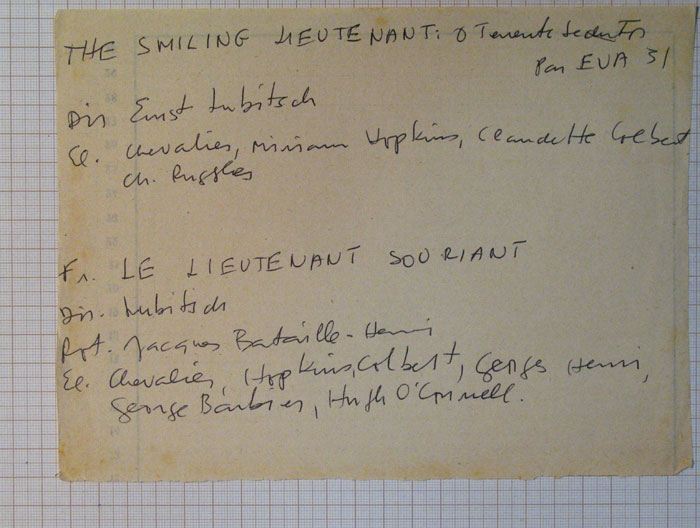 THE SMILING LIEUTENANT: O Tenente Sedutor
Par EUA 31
Dir Ernst Lubitsch
El. Chevalier, Miriam Hopkins, Claudette Colbert
Ch. Ruggles
Fr. LE LIEUTENANT SOURIANT
Dir. Lubitsch
Rpt. Jacques Bataille-Henri
El. Chevalier, Hopkins, Colbert, Georges Henri,
George Barbier, Hugh O'Connell.